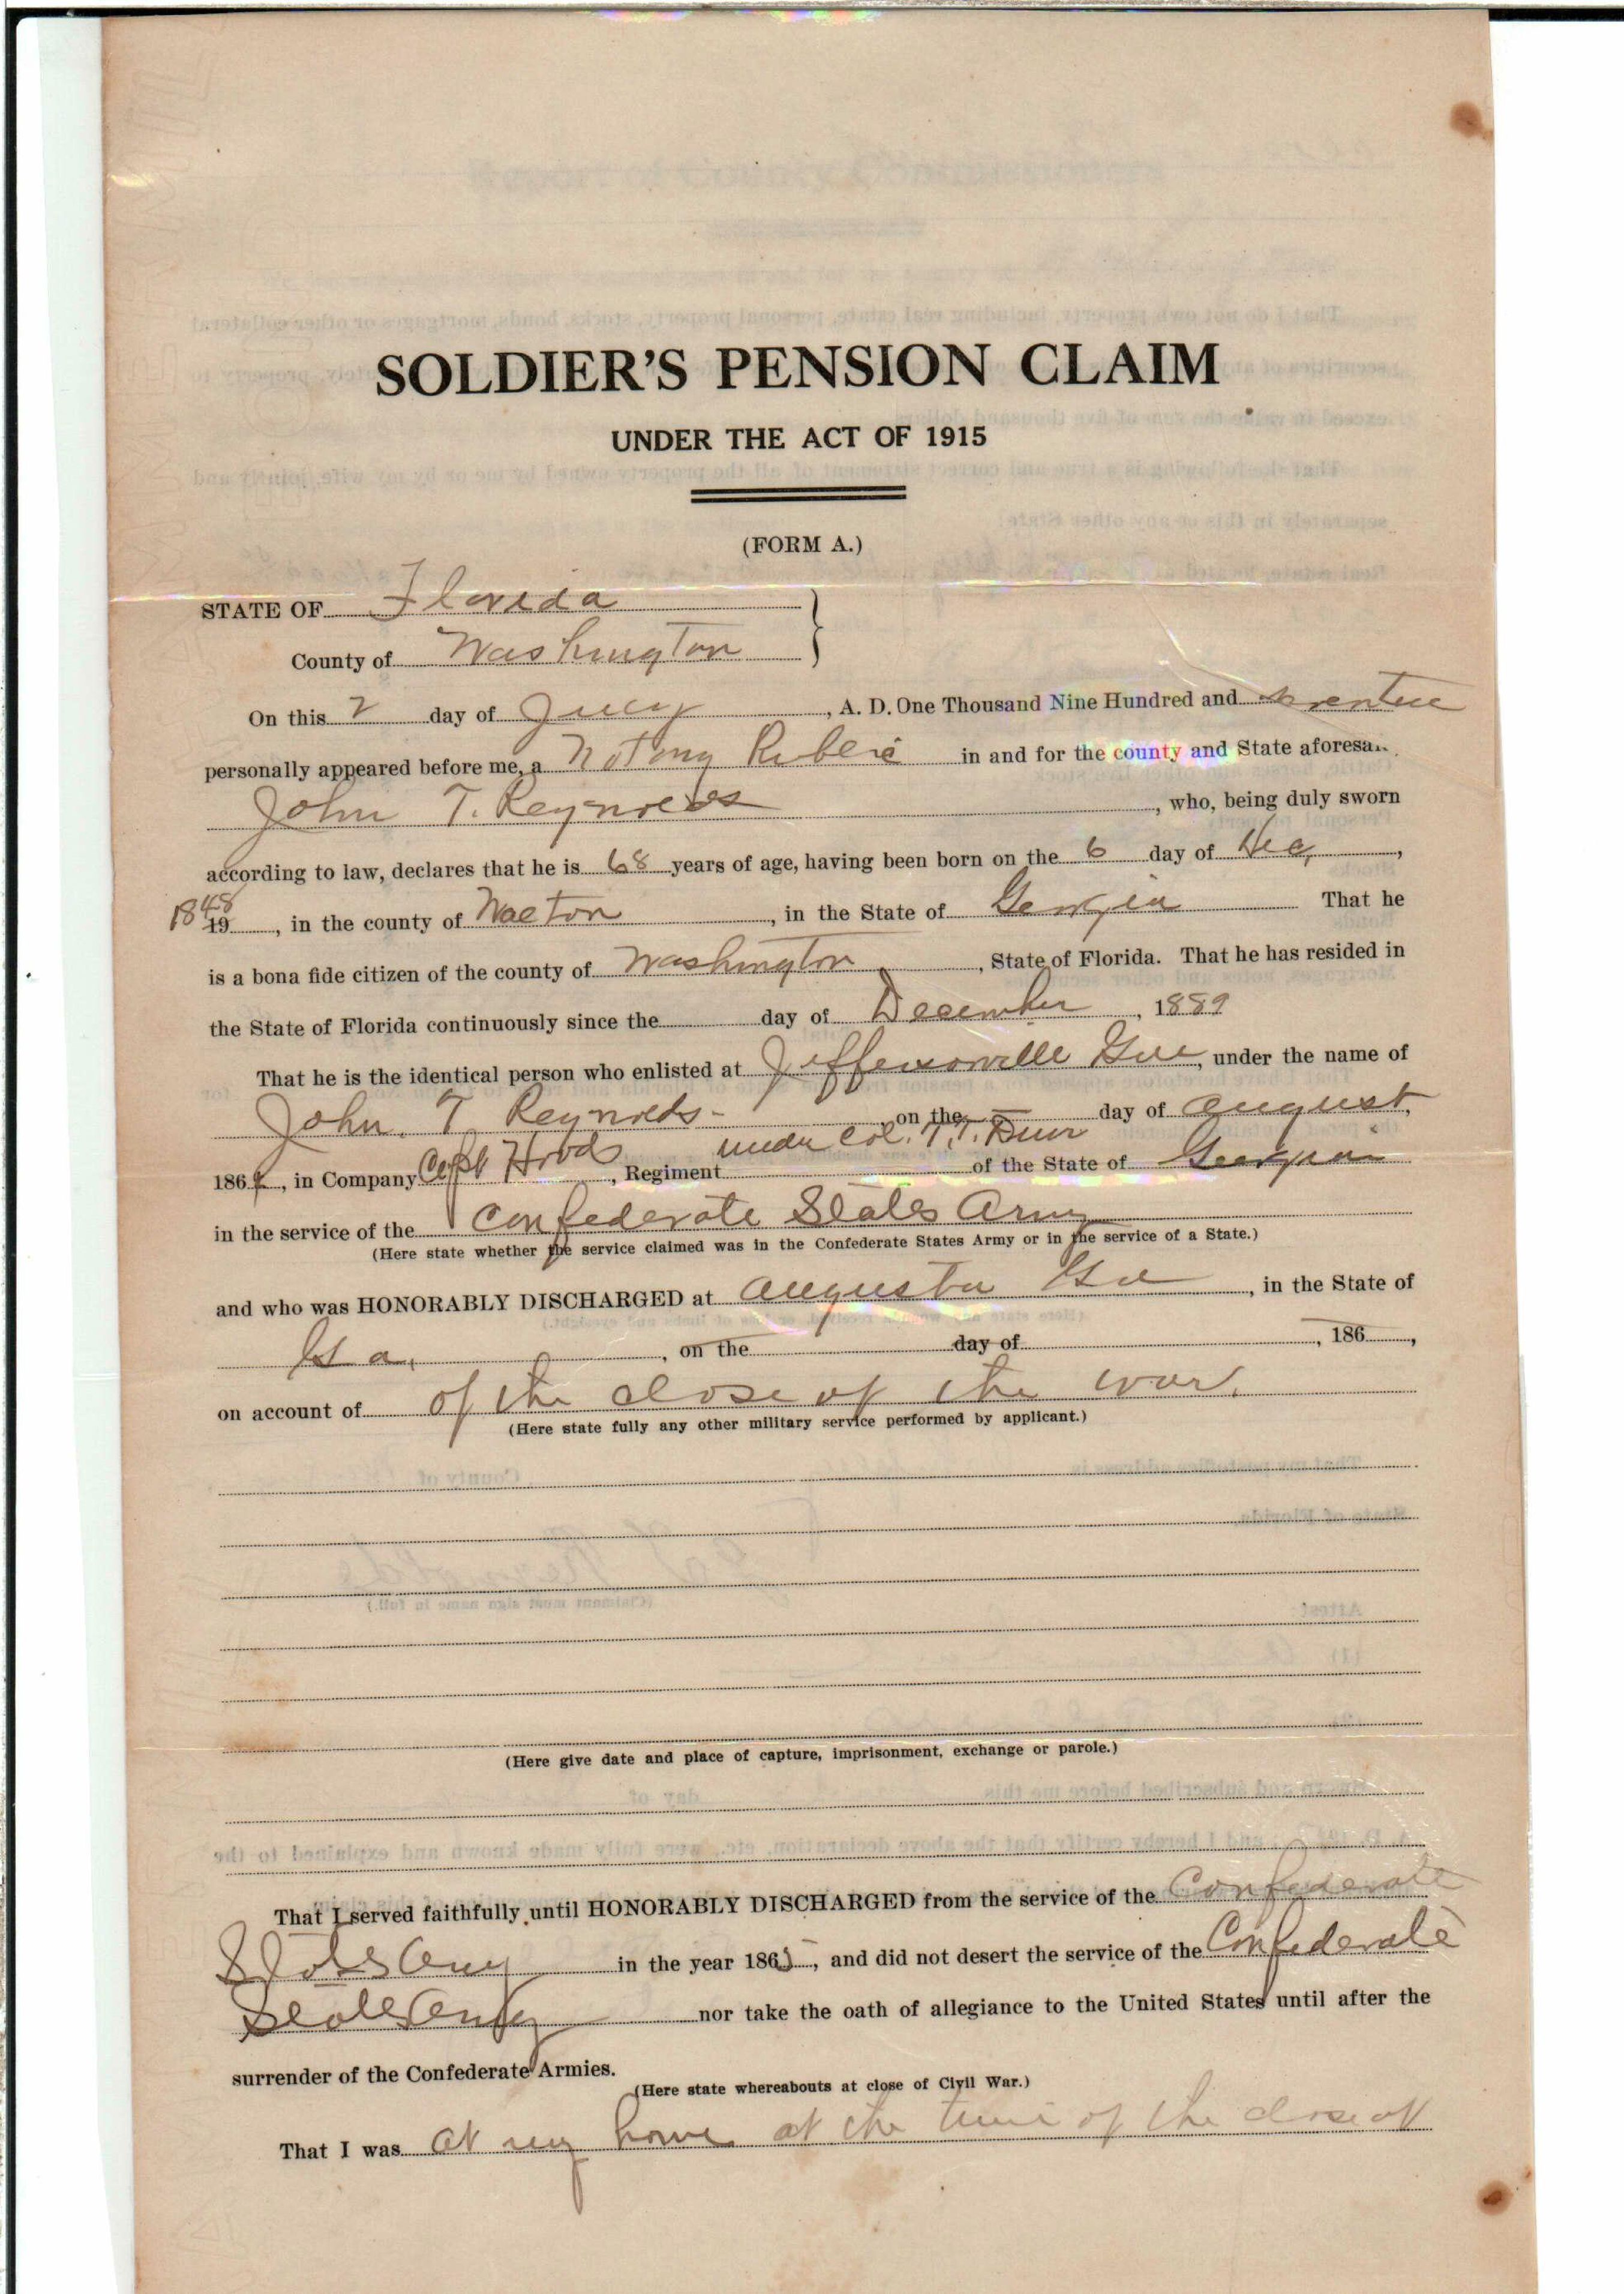 SOLDIER'S PENSION CLAIM
UNDER THE ACT OF 1915
(FORM A.)
STATE OF Florida
County of Washington
On this 2 day of July, A. D. One Thousand Nine Hundred and seventeen
personally appeared before me, a Notary Public in and for the county and State aforesa
John T. Reynolds, who, being duly sworn
according to law, declares that he is 68 years of age, having been born on the 6 day of Dec,
1848 19, in the county of Walton, in the State of Georgia That he
is a bona fide citizen of the county of Washington, State of Florida. That he has resided in
the State of Florida continuously since the day of December, 1889
That he is the identical person who enlisted at Jeffersonville Ga, under the name of
John. T Reynolds - on the — day of August,
1864, in Company Capt Hoods, Regiment under Col. T. of the State of Georgia
in the service of the Confederate States Army
(Here state whether the service claimed was in the Confederate States Army or in the service of a State.)
and who was HONORABLY DISCHARGED at Augusta Ga, in the State of
Ga., on the day of, 186,
on account of of the close of the war.
(Here state fully any other military service performed by applicant.)
(Here give date and place of capture, imprisonment, exchange or parole.)
That I served faithfully until HONORABLY DISCHARGED from the service of the Confederate
States Army in the year 1865, and did not desert the service of the Confederate
States Army nor take the oath of allegiance to the United States until after the
surrender of the Confederate Armies.
(Here state whereabouts at close of Civil War.)
That I was at my home at the time of the close of